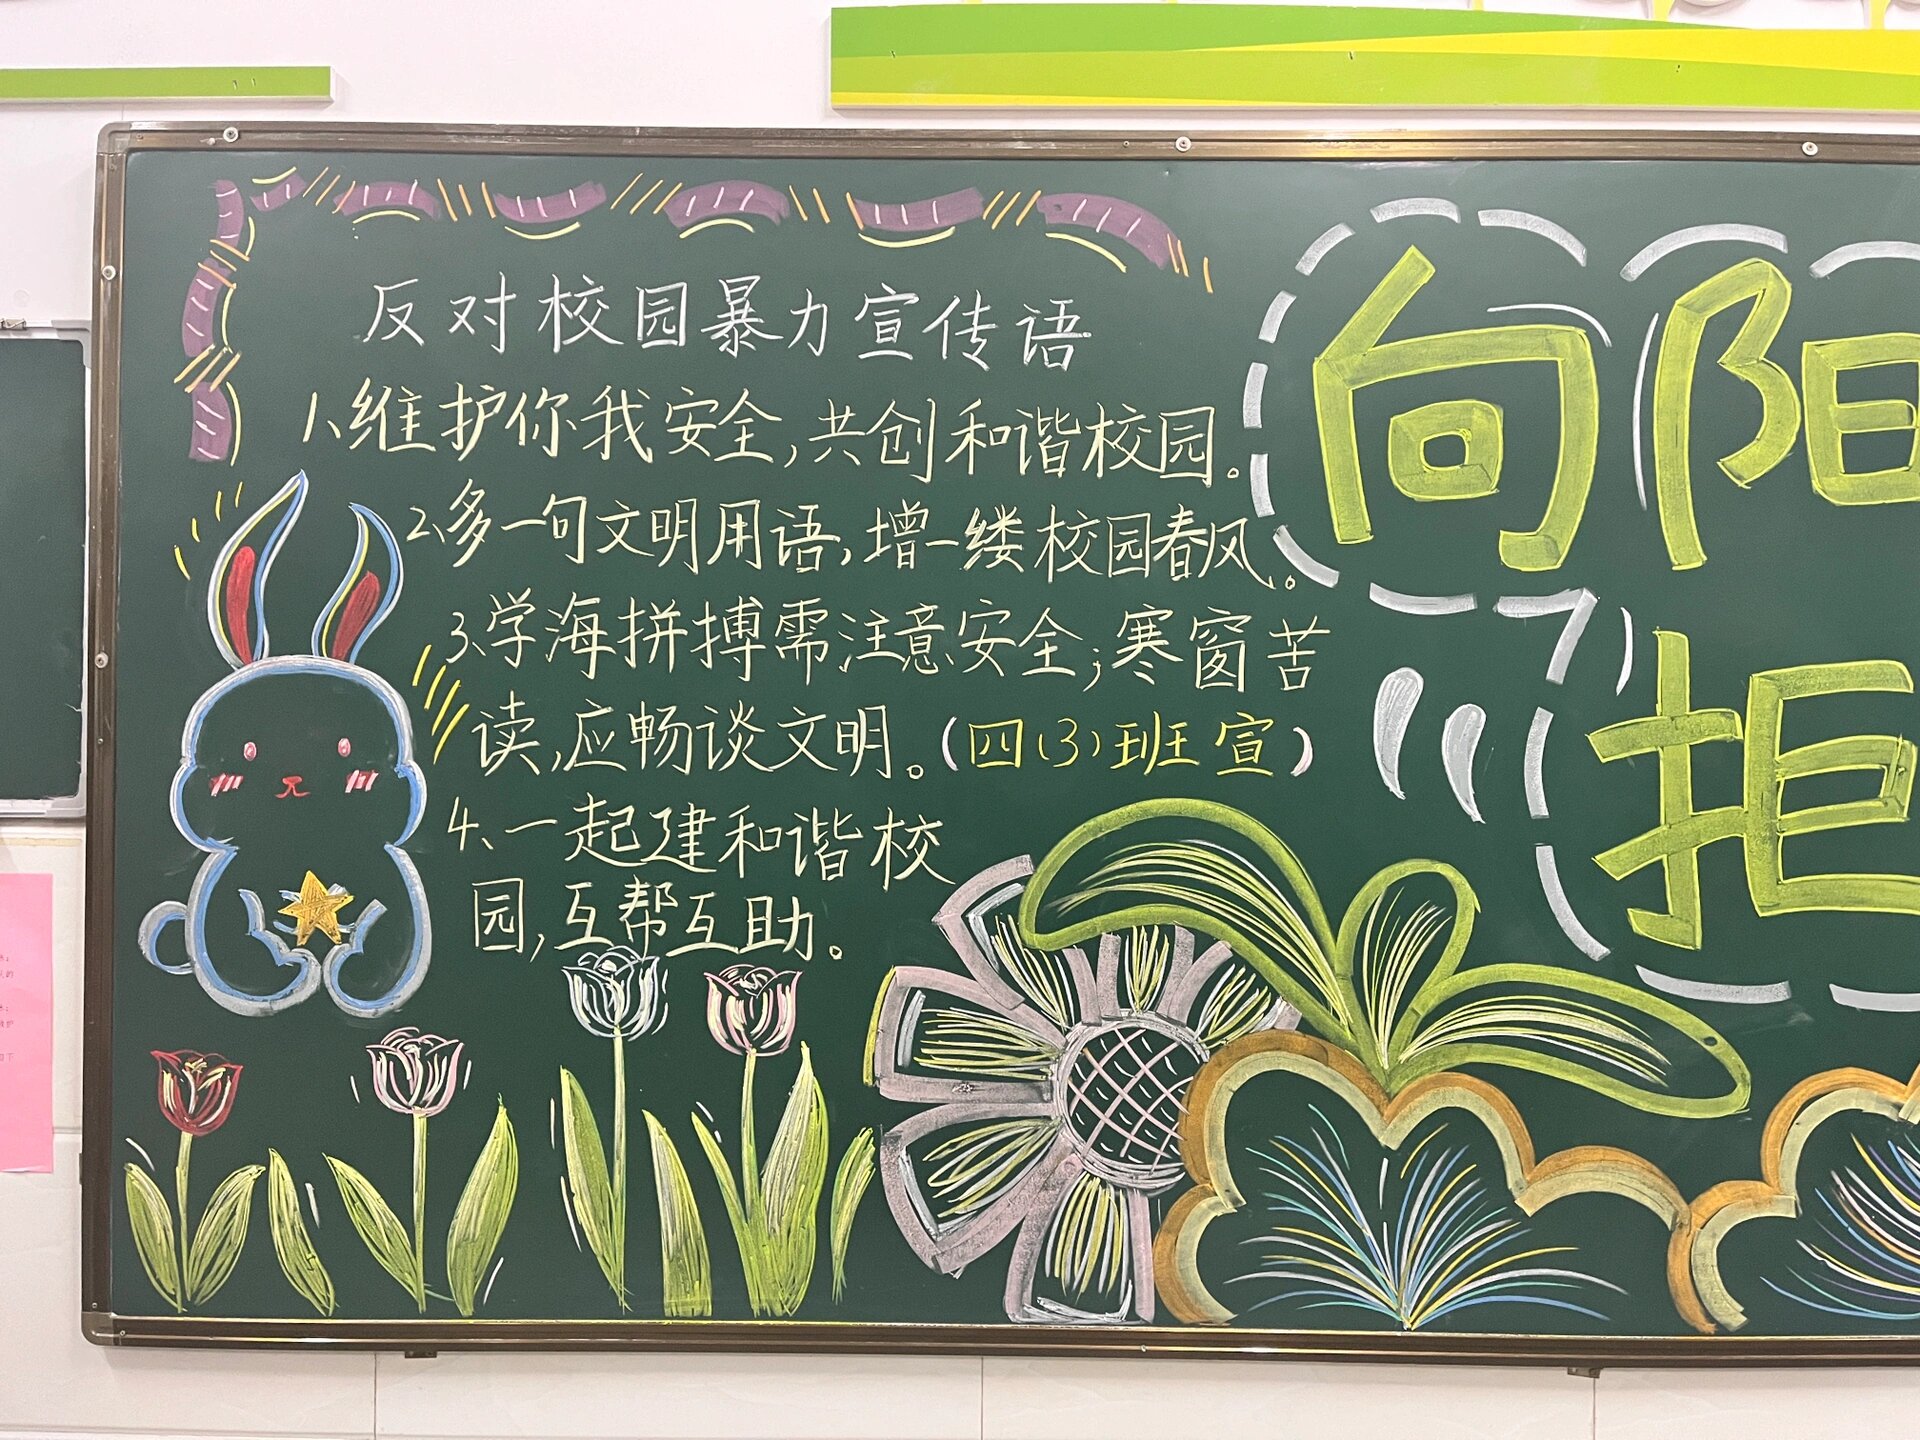 反对校园暴力宣传语
1、维护你我安全,共创和谐校园。
2、多一句文明用语,增一缕校园春风。
3、学海拼搏需注意安全;寒窗苦
读,应畅谈文明。(四(3)班宣)
4、一起建和谐校
园,互帮互助。
向阳
拒